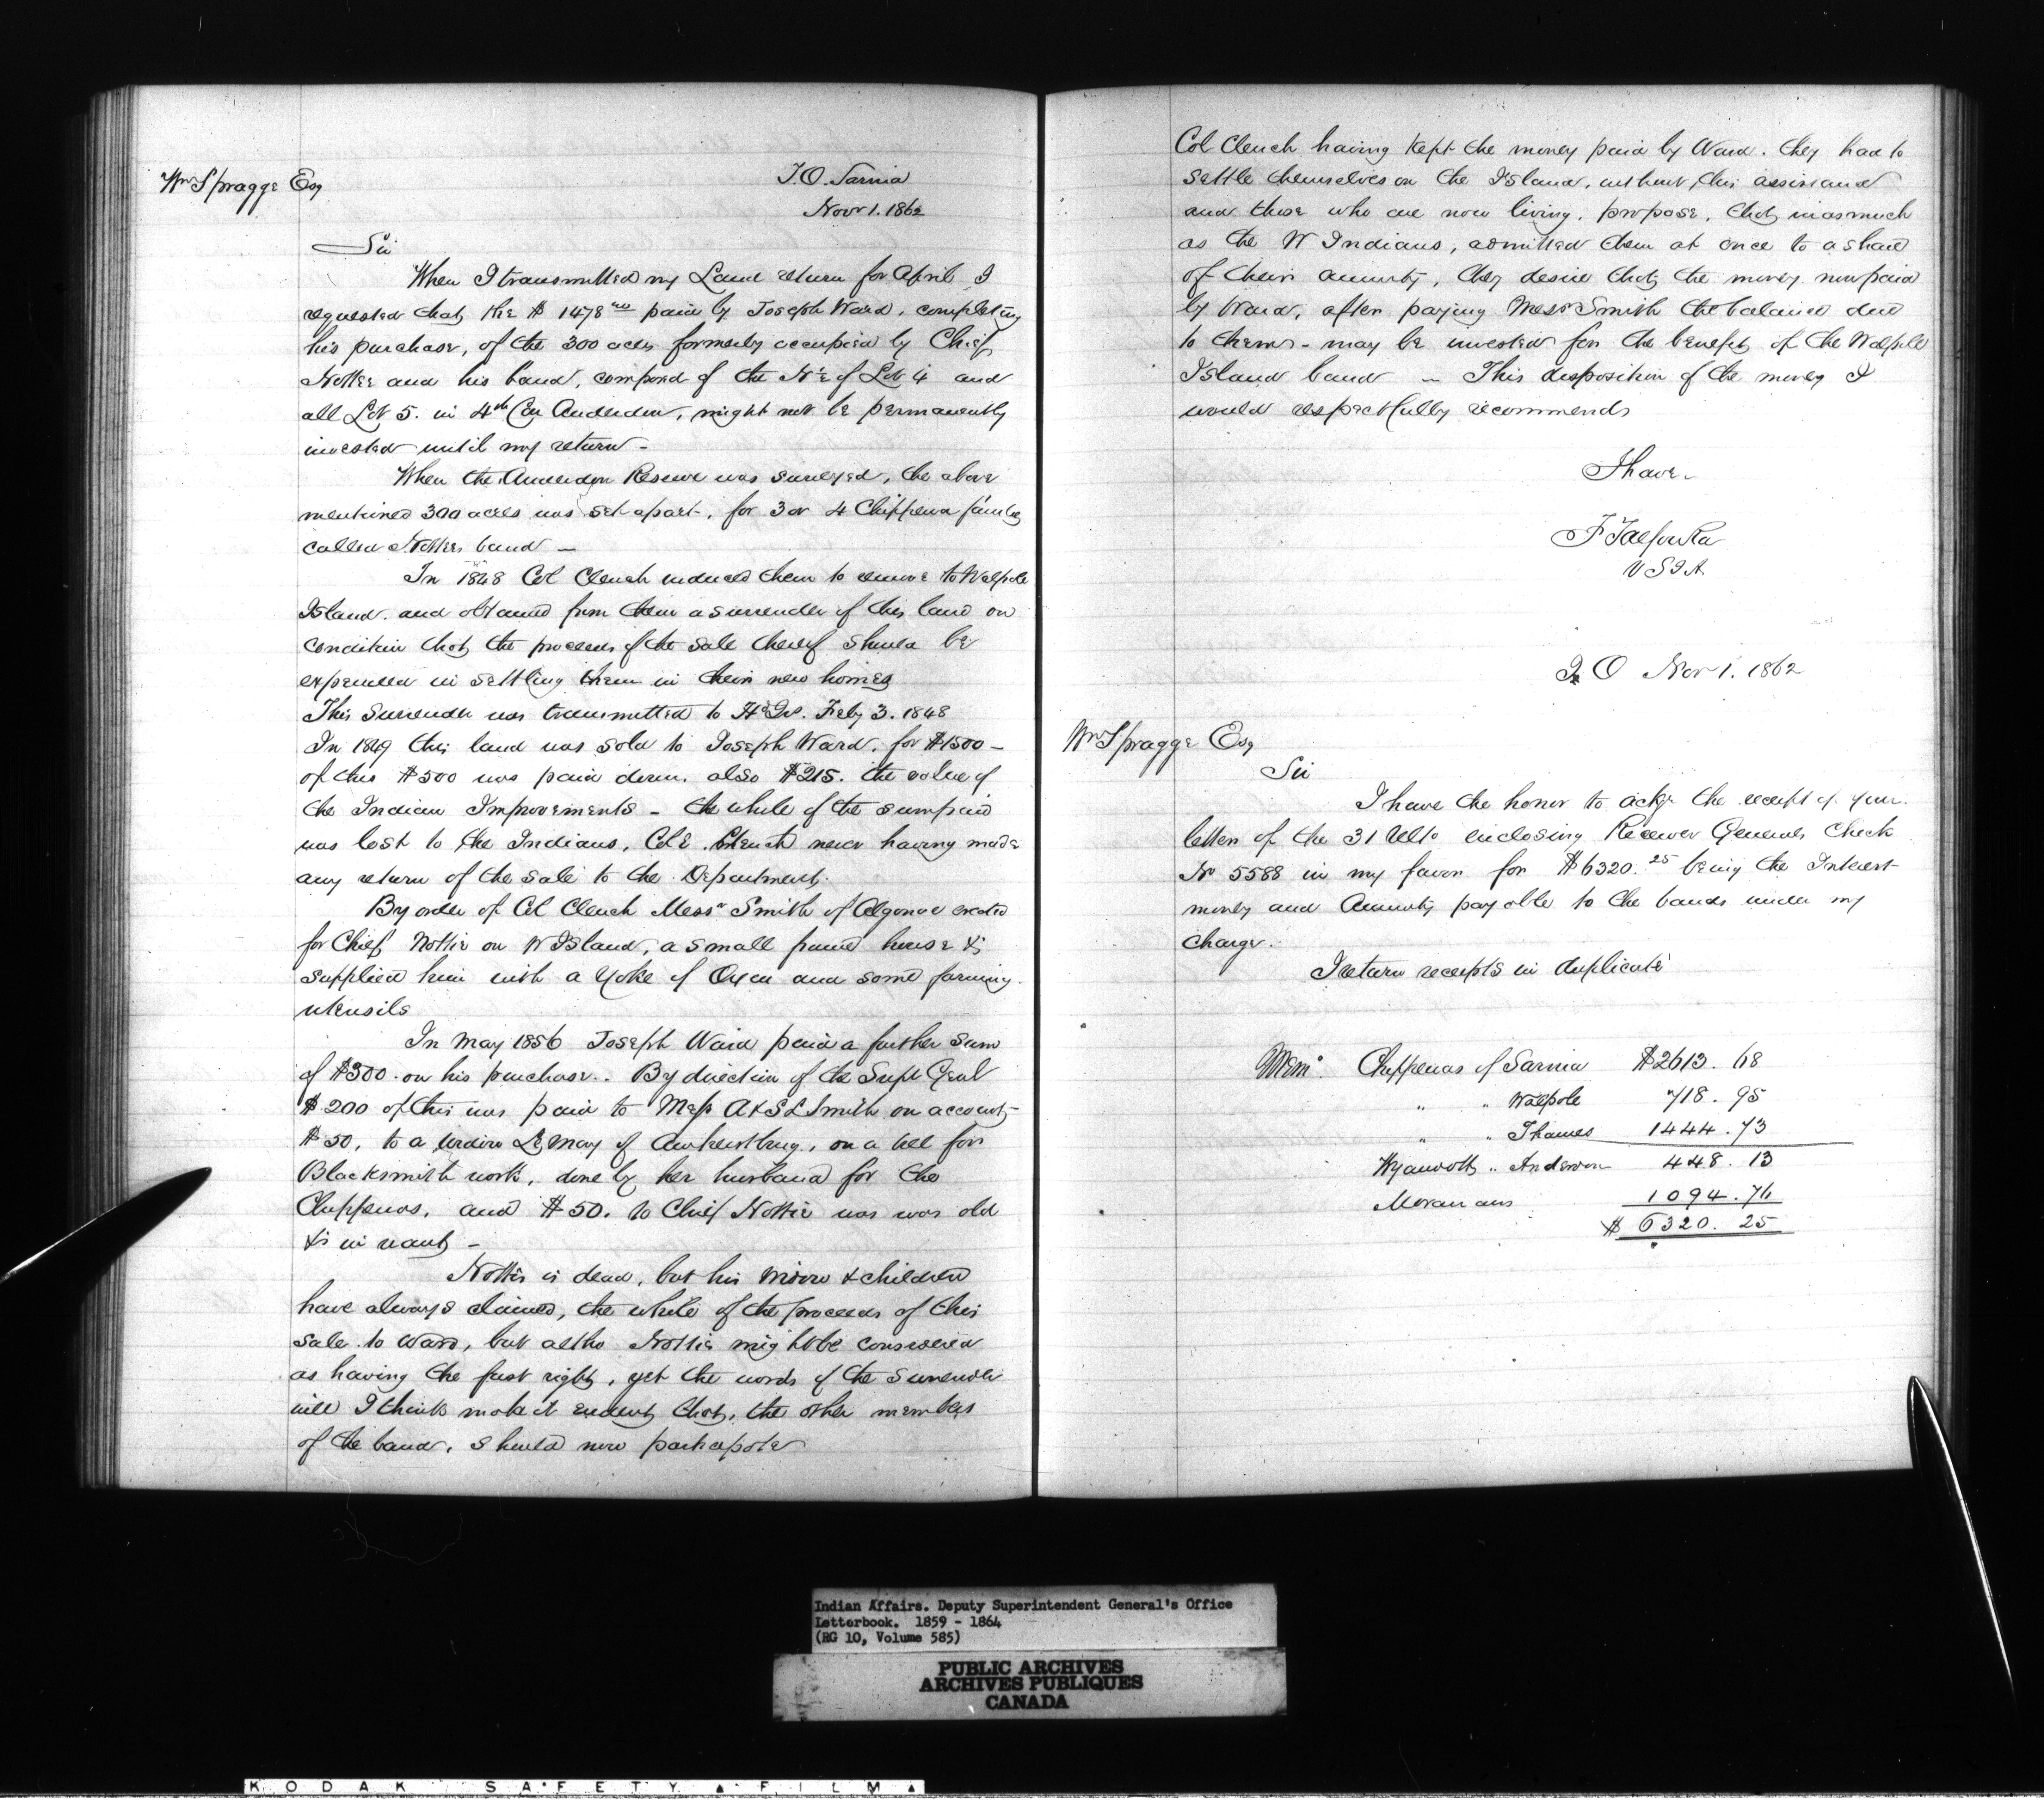 Wm Spragge Esq
I.O. Sarnia
Novr 1. 1862
Sir
When I transmitted my Land return for April I
requested that the $1478 paid by Joseph Ward, completing
his purchase, of the 300 acres formerly occupied by Chief
Nottee and his band, composed of the N½ of Lot 4 and
all Lot 5. in 4th Con Anderdon, might not be permanently
invested until my return -
When the Anderdon Reserve was surveyed, the above
mentioned 300 acres was set apart, for 3 or 4 Chippewa families
called Nottees band -
In 1848 Col Clench induced them to remove to Walpole
Island. and obtained from them a surrender of this land on
condition that the proceeds of the sale thereof should be
expended in settling them in their new homes
This Surrender was transmitted to Hd Qrs. Feby 3. 1848
In 1849 this land was sold to Joseph Ward. for $1500 -
of this $500 was paid down. also $215. the value of
the Indian Improvements - the whole of the sum paid
was lost to the Indians, Col Clench never having made
any return of the sale to the Department.
By order of Col Clench Messrs Smith of Algonac erected
for Chief Nottie on W Island, a small frame house &
supplied him with a Yoke of Oxen and some farming
utensils
In May 1856 Joseph Ward paid a further sum
of $300. on his purchase.. By direction of the Supt Genl
$200 of this was paid to Messrs A & S L Smith on account -
$50, to a widow Lemay of Amherstburg, on a bill for
Blacksmith work, done by her husband for the
Chippewas, and $50. to Chief Nottie was was old
& in want -
Nottie is dead, but his widow & children
have always claimed, the whole of the proceeds of this
sale to Ward, but altho Nottie might be considered
as having the first right, yet the words of the Surrender
will I think make it evident that, the other members
of the band, should now participate
Col Clench having kept the money paid by Ward. they had to
settle themselves on the Island, without this assistance
and those who are now living, propose, that inasmuch
as the W Indians, admitted them at once to a share
of their annuity, they desire that the money now paid
by Ward, after paying Messrs Smith the balance due
to them - may be invested for the benefit of the Walpole
Island band - This disposition of the money I
would respectfully recommend
I have -
F Talfourd
V S I A.
I O Nov 1. 1862
Wm Spragge Esq
Sir
I have the honor to ackge the receipt of your
letter of the 31 Ulto enclosing Receiver Generals Check
No 5588 in my favor for $6320.25 being the Interest
money and Annuity payable to the bands under my
charge.
I return receipts in duplicate
Memo. Chippewas of Sarnia $2613.68
" " Walpole 718.95
" " Thames 1444.73
Wyandotts " Anderdon 448.13
Moravians 1094.76
$6320.25
Indian Affairs. Deputy Superintendent General's Office
Letterbook. 1859 - 1864
(RG 10, Volume 585)
PUBLIC ARCHIVES
ARCHIVES PUBLIQUES
CANADA
KODAK SAFETY FILM